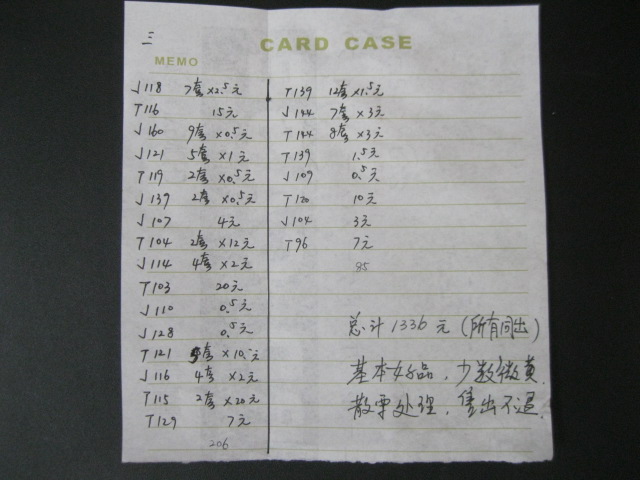 三
CARD CASE
MEMO
J118 7套×2.5元
T116 15元
J160 9套×0.5元
J121 5套×1元
T119 2套×0.5元
J139 2套×0.5元
J107 4元
T104 2套×12元
J114 4套×2元
T103 20元
J110 0.5元
J128 0.5元
T121 套×10元
J116 4套×2元
T115 2套×20元
T129 7元
206
T139 12套×1.5元
J144 7套×3元
T144 8套×3元
T139 1.5元
J109 0.5元
T120 10元
J104 3元
T96 7元
85
总计1336元(所有同出)
基本好品,少数微黄.
散票处理,售出不退.